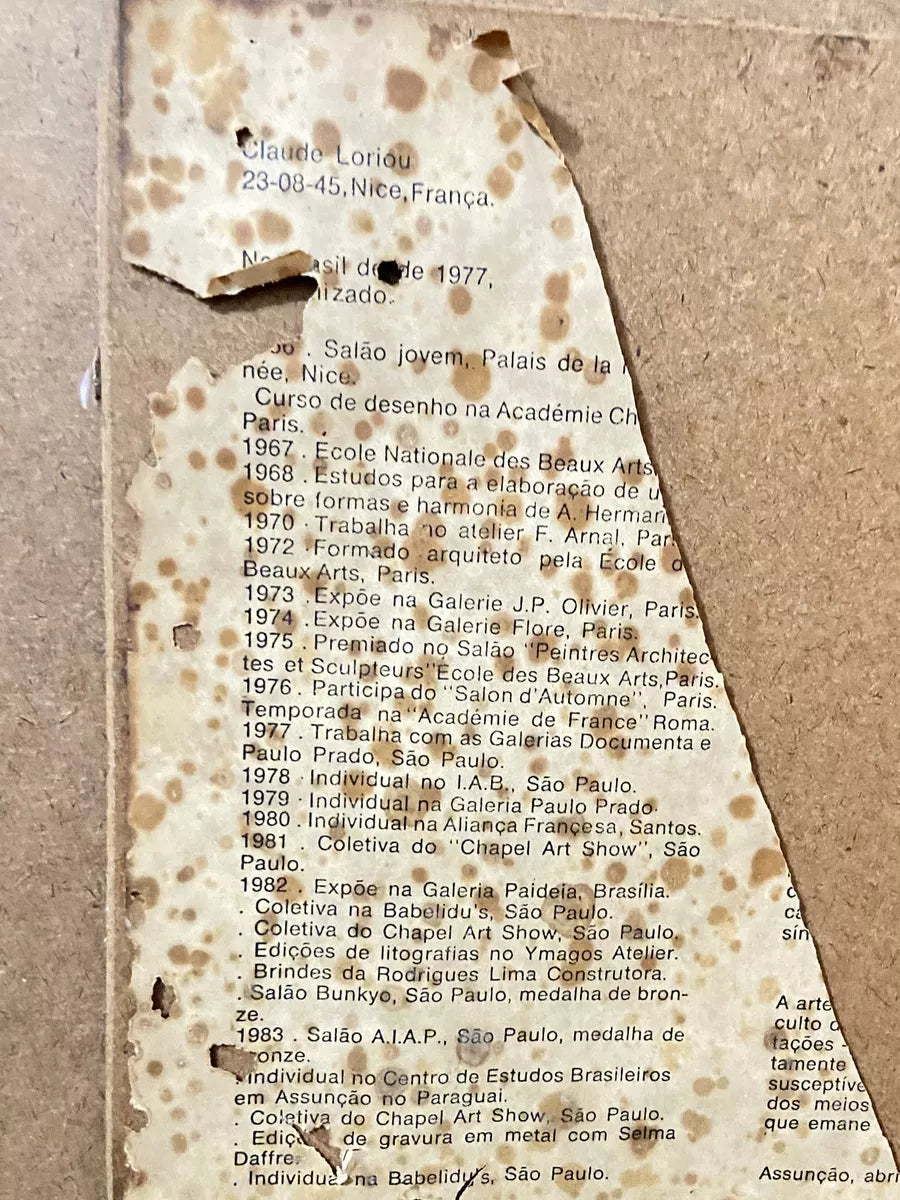 Claude Loriou
23-08-45, Nice, França.
de 1977,
. Salão jovem, Palais de la
née, Nice.
Curso de desenho na Académie
Paris.
1967 . École Nationale des Beaux Arts
1968 . Estudos para a elaboração de
sobre formas e harmonia de A.
1970 . Trabalha no atelier F. Arnal,
1972 . Formado arquiteto pela École
Beaux Arts, Paris.
1973 . Expõe na Galerie J.P. Olivier, Paris.
1974 . Expõe na Galerie Flore, Paris.
1975 . Premiado no Salão "Peintres Architec-
tes et Sculpteurs" École des Beaux Arts, Paris.
1976 . Participa do "Salon d'Automne", Paris.
Temporada na "Académie de France" Roma.
1977 . Trabalha com as Galerias Documenta e
Paulo Prado, São Paulo.
1978 . Individual no I.A.B., São Paulo.
1979 . Individual na Galeria Paulo Prado.
1980 . Individual na Aliança Françesa, Santos.
1981 . Coletiva do "Chapel Art Show", São
Paulo.
1982 . Expõe na Galeria Paideia, Brasília.
. Coletiva na Babelidu's, São Paulo.
. Coletiva do Chapel Art Show, São Paulo.
. Edições de litografias no Ymagos Atelier.
. Brindes da Rodrigues Lima Construtora.
. Salão Bunkyo, São Paulo, medalha de bron-
ze.
1983 . Salão A.I.A.P., São Paulo, medalha de
bronze.
. Individual no Centro de Estudos Brasileiros
em Assunção no Paraguai.
. Coletiva do Chapel Art Show, São Paulo.
. de gravura em metal com Selma
Daffre.
. Individual na Babelidu's, São Paulo.
A arte
culto
tações
tamente
dos meios
que emane
Assunção,